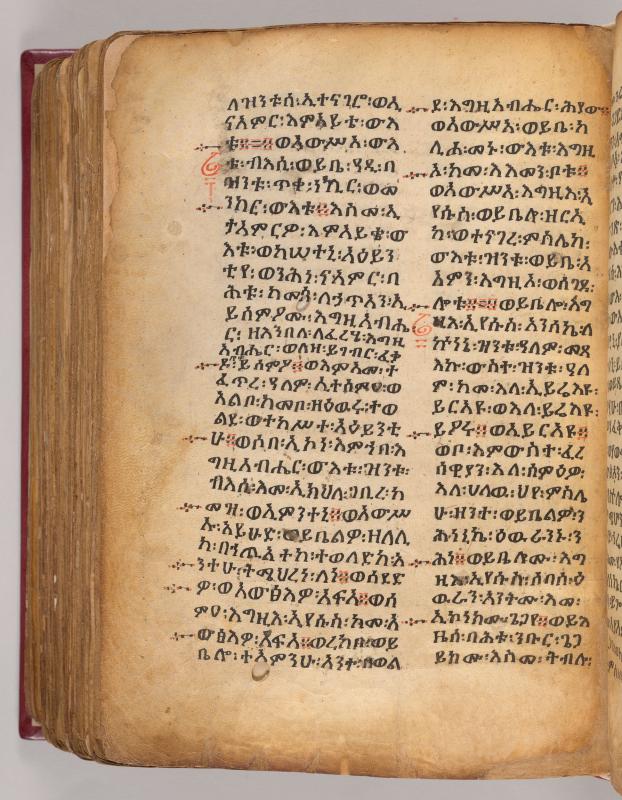 ለዝንቱሰ፡ኢተናገሮ፡ወኢ
ናአምር፡እምአይቴ፡ውእ
ቱ።=።ወአውሥአ፡ውእ
ቱ፡ብእሲ፡ወይቤ፡ዓዲ፡በ
ዝንቱ፡ጥቀ፡ንኪር፡ወመ
ንክር፡ውእቱ።እስመ፡ኢ
ታአምርዎ፡እምአይቴ፡ው
እቱ፡ወከሠተኒ፡አዕይን
ትየ፡ወንሕነ፡ናአምር፡በ
ሕቱ፡ከመሰ፡ለኃጥአን፡ኢ
ይሰምዖሙ፡እግዚአብሔ
ር፡ዘእንበለ፡ለፈራሄ፡እግዚ
አብሔር፡ወለዝ፡ይገብር፡ፈቃ
ዶ፡ይሰምዖ።ወእምአመ፡ተ
ፈጥረ፡ዓለም፡ኢተሰምዐ፡ወ
አልቦ፡ከመቦ፡ዘዕዉሩ፡ተወ
ልደ፡ወተከሥተ፡አዕይንቲ
ሁ።ወሶበ፡ኢኮነ፡እምኀበ፡እ
ግዚአብሔር፡ውእቱ፡ዝንቱ፡
ብእሲ፡እመ፡ኢክህለ፡ገቢረ፡ከ
መዝ፡ወኢምንተኒ።ወአውሥ
ኡ፡አይሁድ፡ወይቤልዎ፡ዘለሊ
ከ፡በኀጢአትከ፡ተወለድከ፡አ
ንተ፡ሁ፡ትሜህረነ፡ለነ።ወሰደድ
ዎ፡ወአውፅእዎ፡አፍአ።ወሰ
ምዐ፡እግዚእ፡ኢየሱስ፡ከመ፡አ
ውፅእዎ፡አፍአ።ወረከቦ፡ወይ
ቤሎ፡ተአምንሁ፡አንተ፡በወል
ደ፡እግዚአብሔር፡ሕያው።
ወአውሥአ፡ወይቤ፡ከ
ሊሐ፡መኑ፡ውእቱ፡እግዚ
እ፡ከመ፡እእመን፡ቦቱ።
ወአውሥአ፡እግዚእ፡ኢ
የሱስ፡ወይቤሎ፡ዘርኢ
ከ፡ወተናገረ፡ምስሌከ፡
ውእቱ፡ዝንቱ፡ወይቤ፡አ
አምን፡እግዚኦ፡ወሰገደ፡
ሎቱ።=።ወይቤሎ፡እግ
ዚእ፡ኢየሱስ፡አንሰኬ፡ለ
ኵነኔ፡ዝንቱ፡ዓለም፡መጻ
እኩ፡ውስተ፡ዝንቱ፡ዓለ
ም፡ከመ፡እለ፡ኢይሬእዩ፡
ይርአዩ፡ወእለ፡ይሬእዩ፡
ይዖሩ።ወኢይርአዩ።
ወቦ፡እምውስተ፡ፈሪ
ሳዊያን፡እለ፡ሰምዕዎ፡
እለ፡ሀለዉ፡ህየ፡ምስሌ
ሁ፡ዝንተ፡ወይቤልዎ፡ን
ሕነኒኬ፡ዕዉራንኑ፡ን
ሕነ።ወይቤሎሙ፡እግ
ዚእ፡ኢየሱስ፡ሶበሰ፡ዕ
ዉራን፡አንትሙ፡እመ፡
ኢኮነክሙ፡ጌጋየ።ወይእ
ዜሰ፡በሕቱ፡ንቡር፡ጌጋ
ይክሙ፡እስመ፡ትብሉ፡